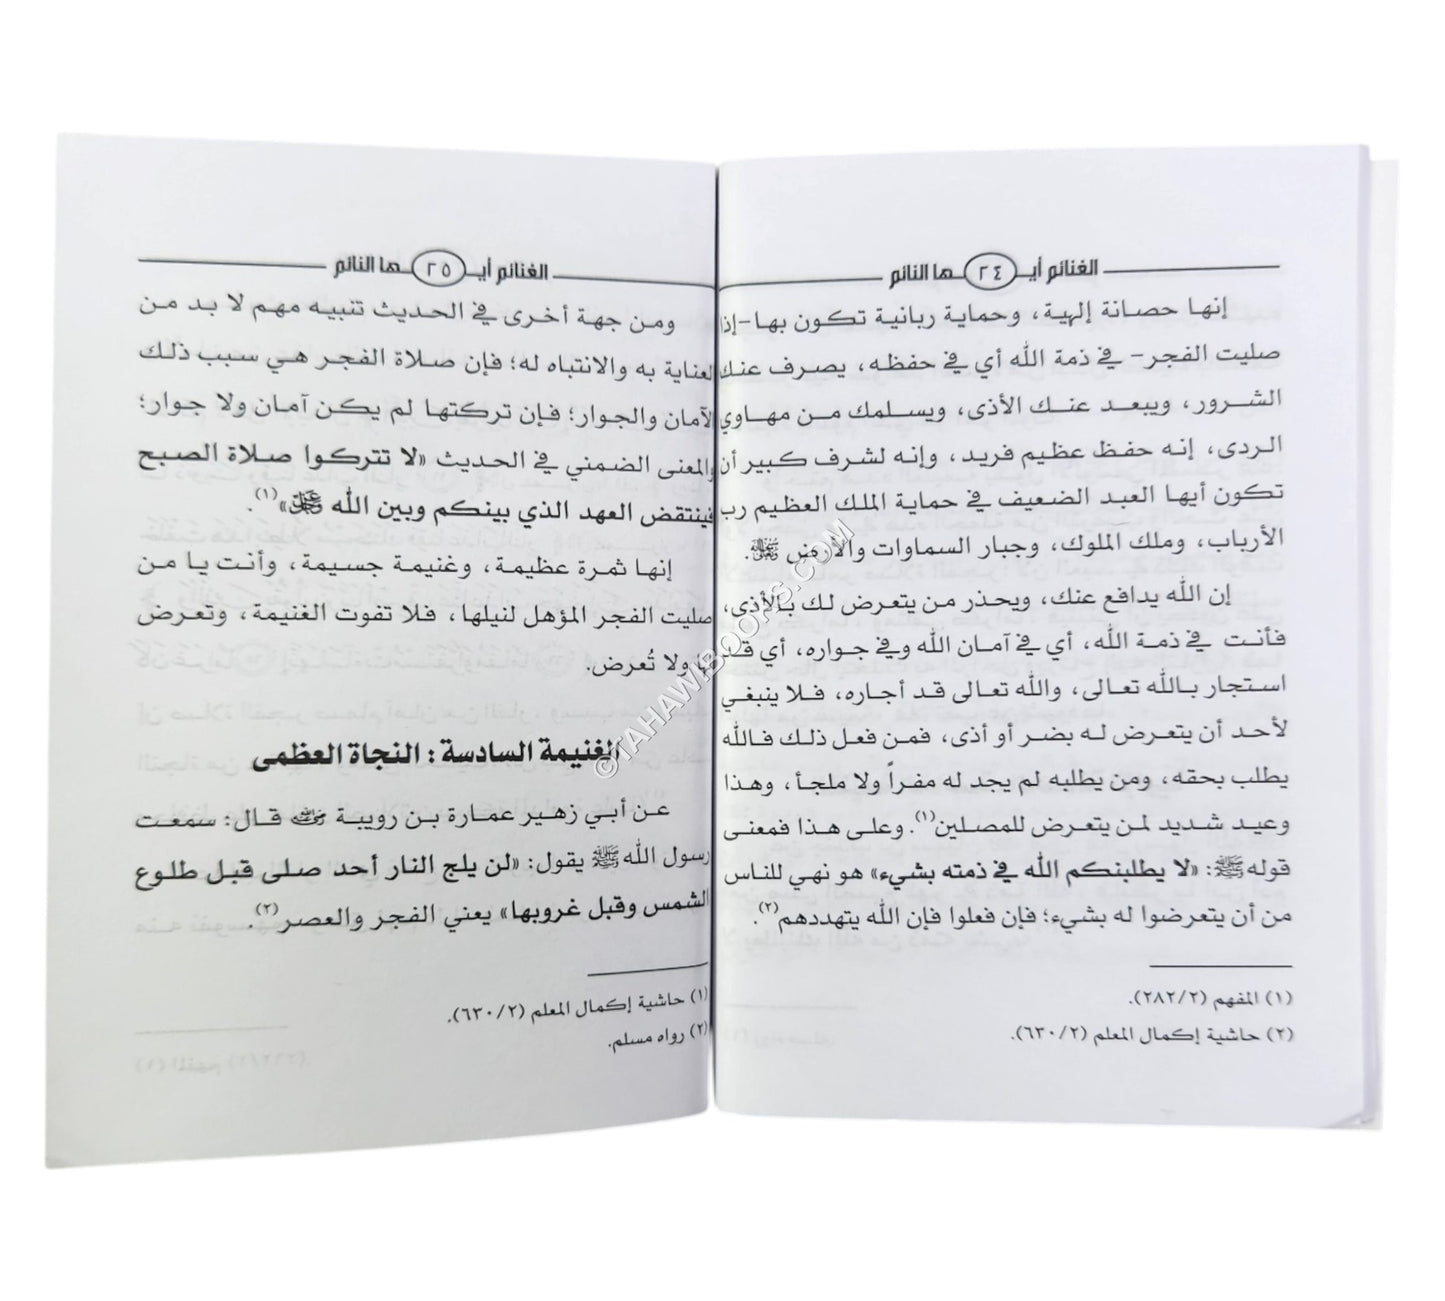 الغنائم أيـ ٢٤ ـها النائم
إنها حصانة إلهية، وحماية ربانية تكون بها-إذا
صليت الفجر- في ذمة الله أي في حفظه، يصرف عنك
الشرور، ويبعد عنك الأذى، ويسلمك من مهاوي
الردى، إنه حفظ عظيم فريد، وإنه لشرف كبير أن
تكون أيها العبد الضعيف في حماية الملك العظيم رب
الأرباب، وملك الملوك، وجبار السماوات والأرض ﷻ.
إن الله يدافع عنك، ويحذر من يتعرض لك بالأذى،
فأنت في ذمة الله، أي في آمان الله وفي جواره، أي قد
استجار بالله تعالى، والله تعالى قد أجاره، فلا ينبغي
لأحد أن يتعرض له بضر أو أذى، فمن فعل ذلك فالله
يطلب بحقه، ومن يطلبه لم يجد له مفراً ولا ملجأ، وهذا
وعيد شديد لمن يتعرض للمصلين(١). وعلى هذا فمعنى
قوله ﷺ: «لا يطلبنكم الله في ذمته بشيء» هو نهي للناس
من أن يتعرضوا له بشيء؛ فإن فعلوا فإن الله يتهددهم(٢).
(١) المفهم (٢/٢٨٢).
(٢) حاشية إكمال المعلم (٢/٦٣٠).
الغنائم أيـ ٢٥ ـها النائم
ومن جهة أخرى في الحديث تنبيه مهم لا بد من
العناية به والانتباه له؛ فإن صلاة الفجر هي سبب ذلك
الآمان والجوار؛ فإن تركتها لم يكن آمان ولا جوار؛
والمعنى الضمني في الحديث «لا تتركوا صلاة الصبح
فينتقض العهد الذي بينكم وبين الله ﷻ»(١).
إنها ثمرة عظيمة، وغنيمة جسيمة، وأنت يا من
صليت الفجر المؤهل لنيلها، فلا تفوت الغنيمة، وتعرض
لها ولا تُعرض.
الغنيمة السادسة: النجاة العظمى
عن أبي زهير عمارة بن رويبة رضي الله عنه قال: سمعت
رسول الله ﷺ يقول: «لن يلج النار أحد صلى قبل طلوع
الشمس وقبل غروبها» يعني الفجر والعصر(٢).
(١) حاشية إكمال المعلم (٢/٦٣٠).
(٢) رواه مسلم.
©TAHAWIBOOPS.COM